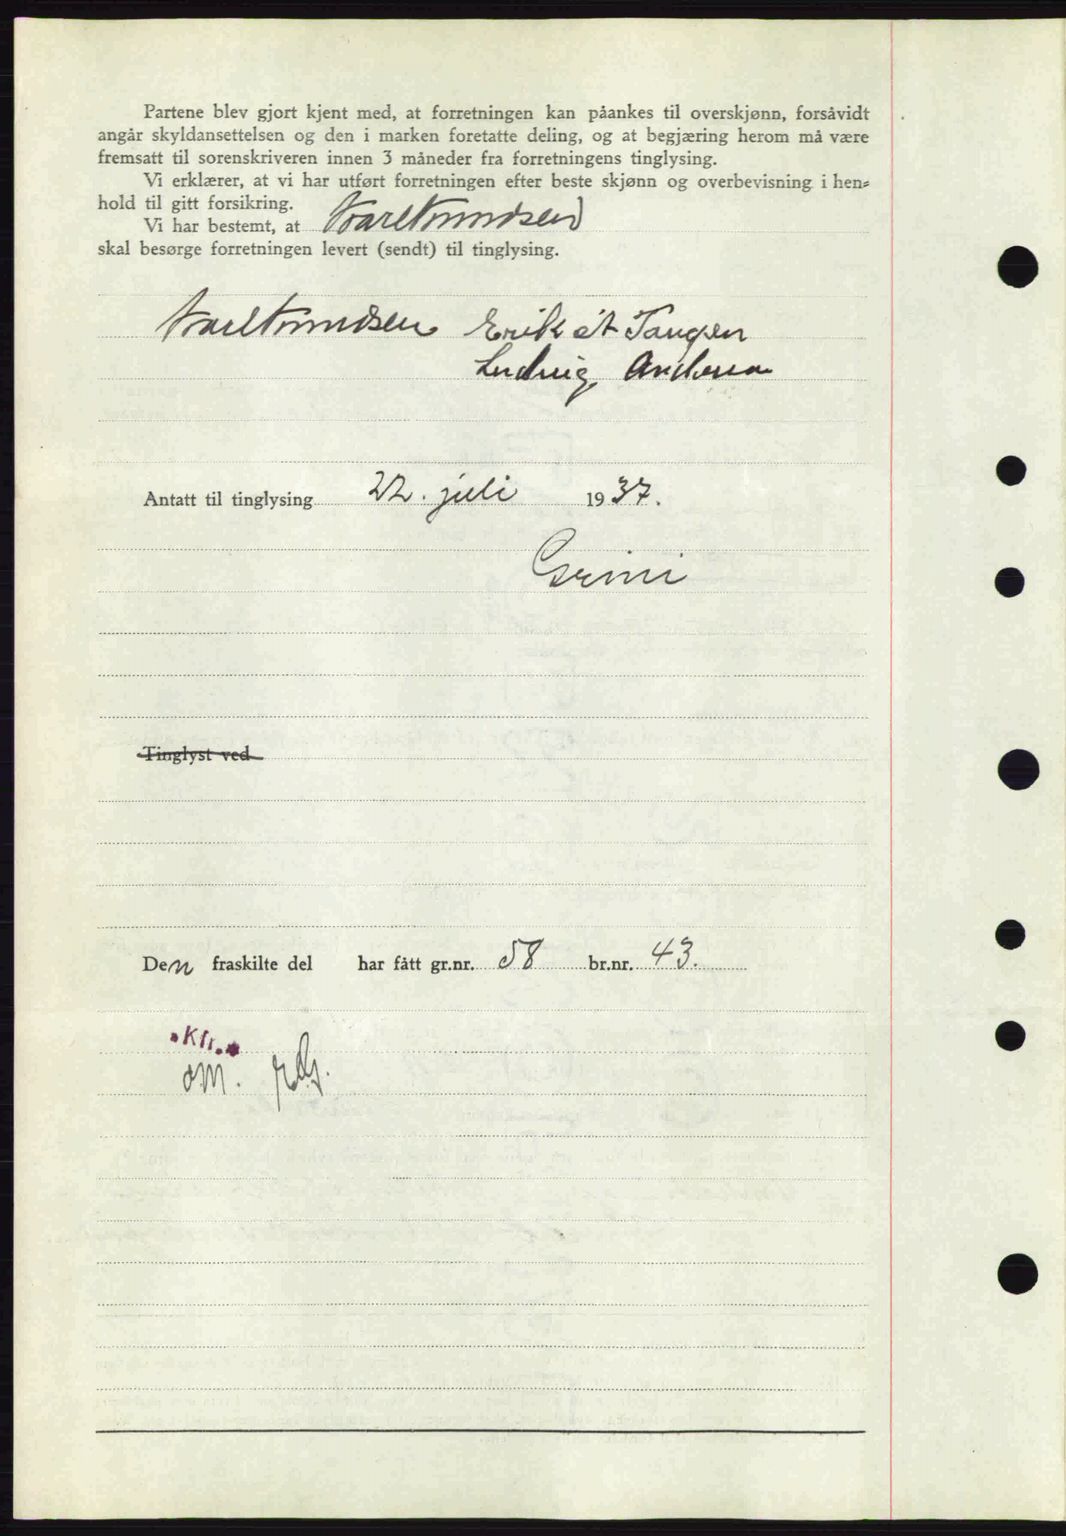 Partene blev gjort kjent med, at forretningen kan påankes til overskjønn, forsåvidt
angår skyldansettelsen og den i marken foretatte deling, og at begjæring herom må være
fremsatt til sorenskriveren innen 3 måneder fra forretningens tinglysing.
Vi erklærer, at vi har utført forretningen efter beste skjønn og overbevisning i hen-
hold til gitt forsikring.
Vi har bestemt, at
skal besørge forretningen levert (sendt) til tinglysing.
Erik Tangen
Ludvig
Antatt til tinglysing 22. juli 1937.
Grini
Tinglyst ved
Den fraskilte del har fått gr.nr. 58 br.nr. 43.
Kfr.